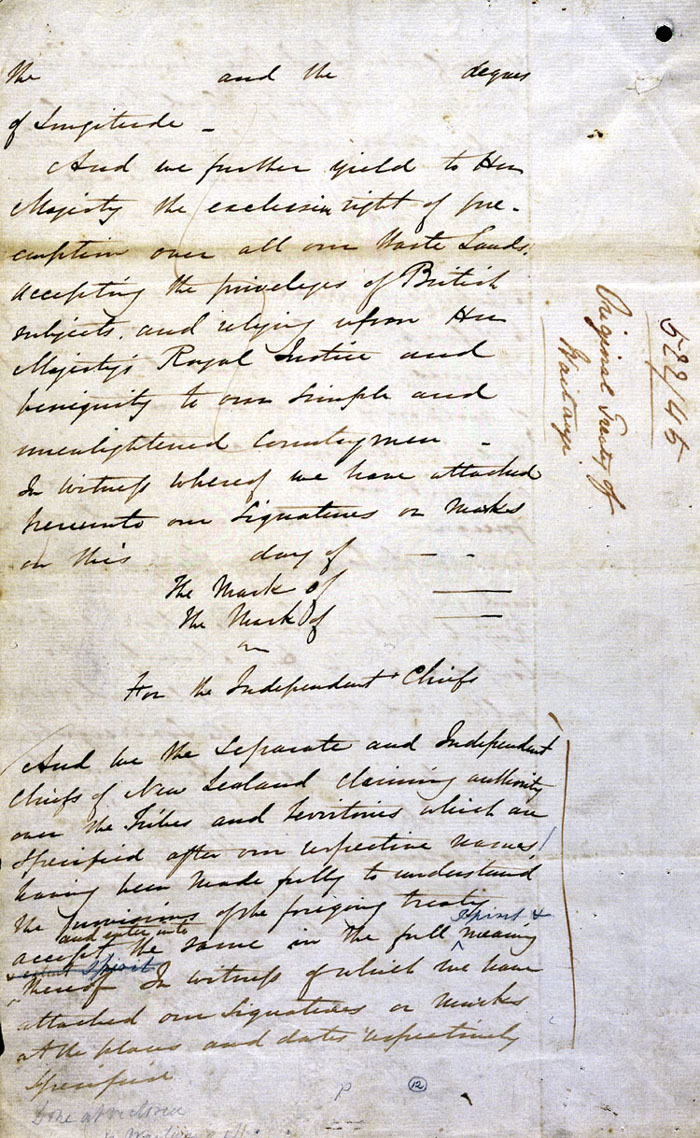 the and the degrees
of Longitude -
And we further yield to Her
Majesty the exclusive right of pre-
emption over all our Waste Lands.
accepting the privileges of British
subjects, and relying upon Her
Majesty's Royal Justice and
benignity to our simple and
unenlightened Countrymen -
In witness whereof we have attached
hereunto our Signatures or Marks
on this day of — -
The Mark of ——
The Mark of ——
or
For the Independent Chiefs
And we the Separate and Independent
Chiefs of New Zealand claiming authority
over the Tribes and Territories which are
specified after our respective names
having been made fully to understand
the provisions of the foregoing treaty
spirit &
and enter into
accept the same in the full meaning
spirit
thereof In witness of which we have
attached our Signatures or Marks
at the places and dates respectively
specified
Done at
P
12
522/45
Original Treaty of
Waitangi